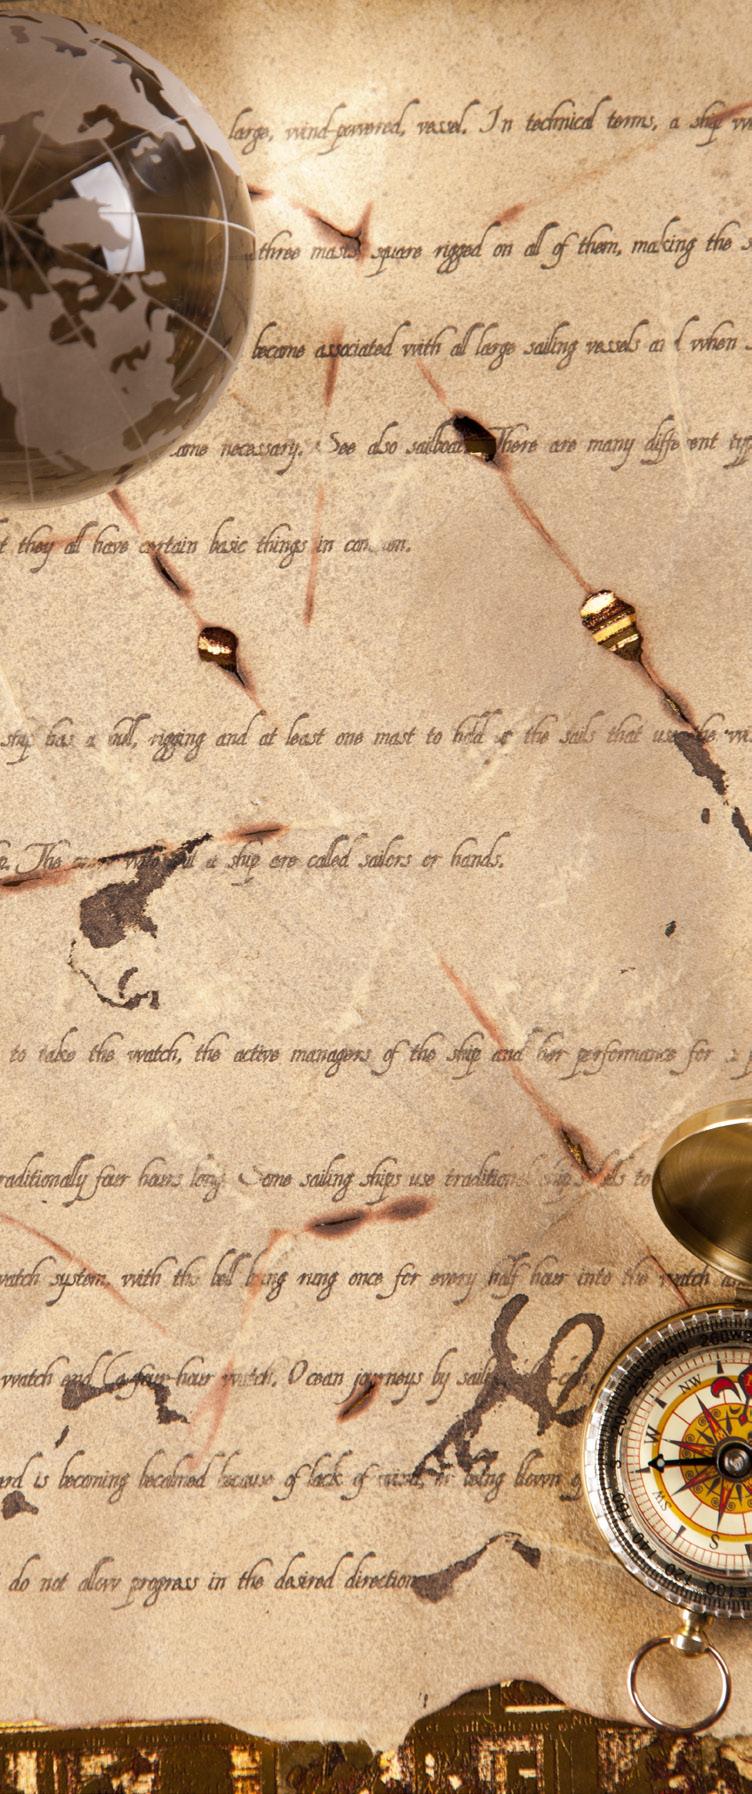 large, wind-powered, vessel. In technical terms, a ship
three masts square rigged on all of them, making the
became associated with all large sailing vessels and when
ame necessary. See also sailboat. There are many different
they all have certain basic things in common.
ship has a hull, rigging and at least one mast to hold the sails that use the
The a ship are called sailors or hands.
to take the watch, the active managers of the ship and her performance for
raditionally four hours long. Some sailing ships use traditional to
watch system, with the bell rung once for every half hour into the watch
watch and four-hour watch. Ocean journeys by
is becoming becalmed because of lack of wind, or being blown
do not allow progress in the desired direction
NW
W
SW
S
260
240
160
140
120
100